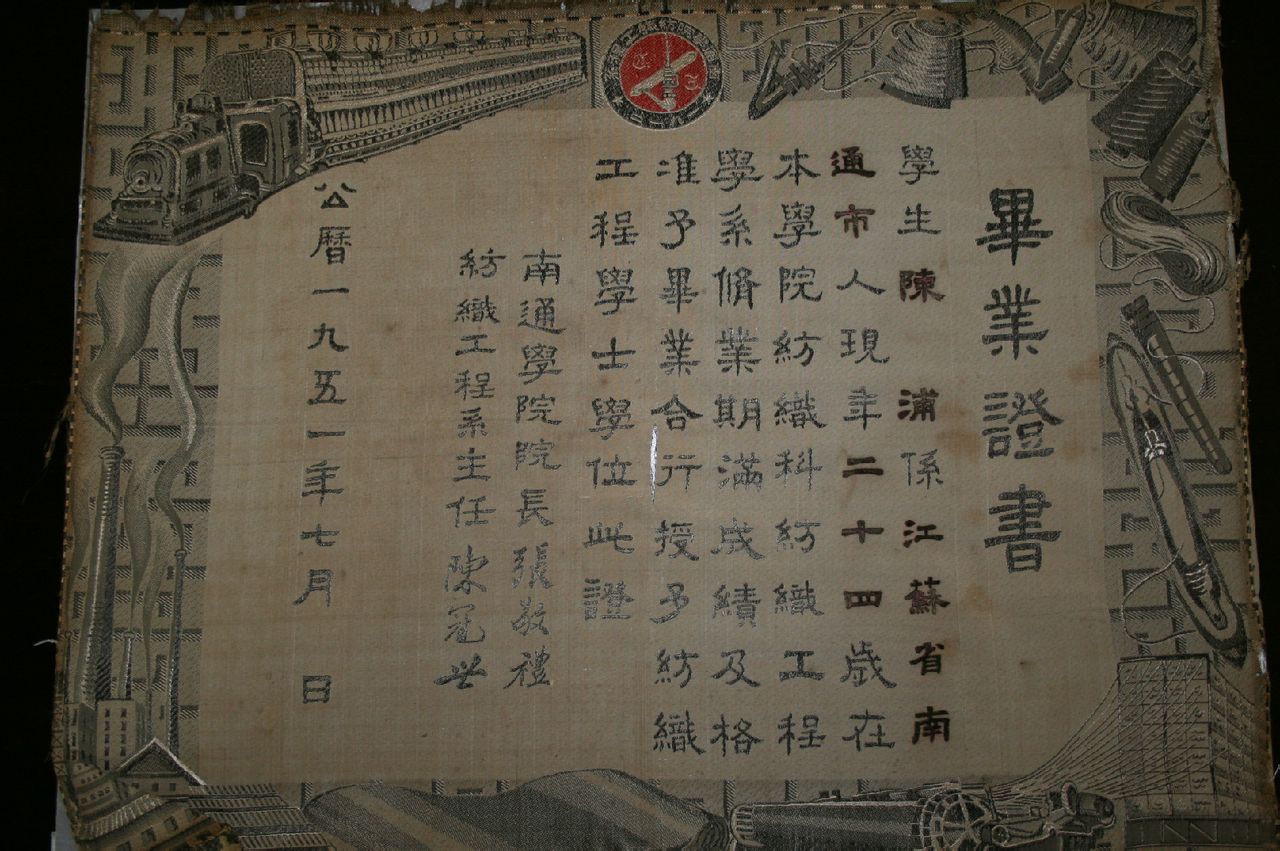 畢業證書
學生陳浦係江蘇省南
通市人現年二十四歲在
本學院紡織科紡織工程
學系脩業期滿成績及格
准予畢業合行授予紡織
工程學士學位此證
南通學院院長張敬禮
紡織工程系主任陳冠世
公曆一九五一年七月 日